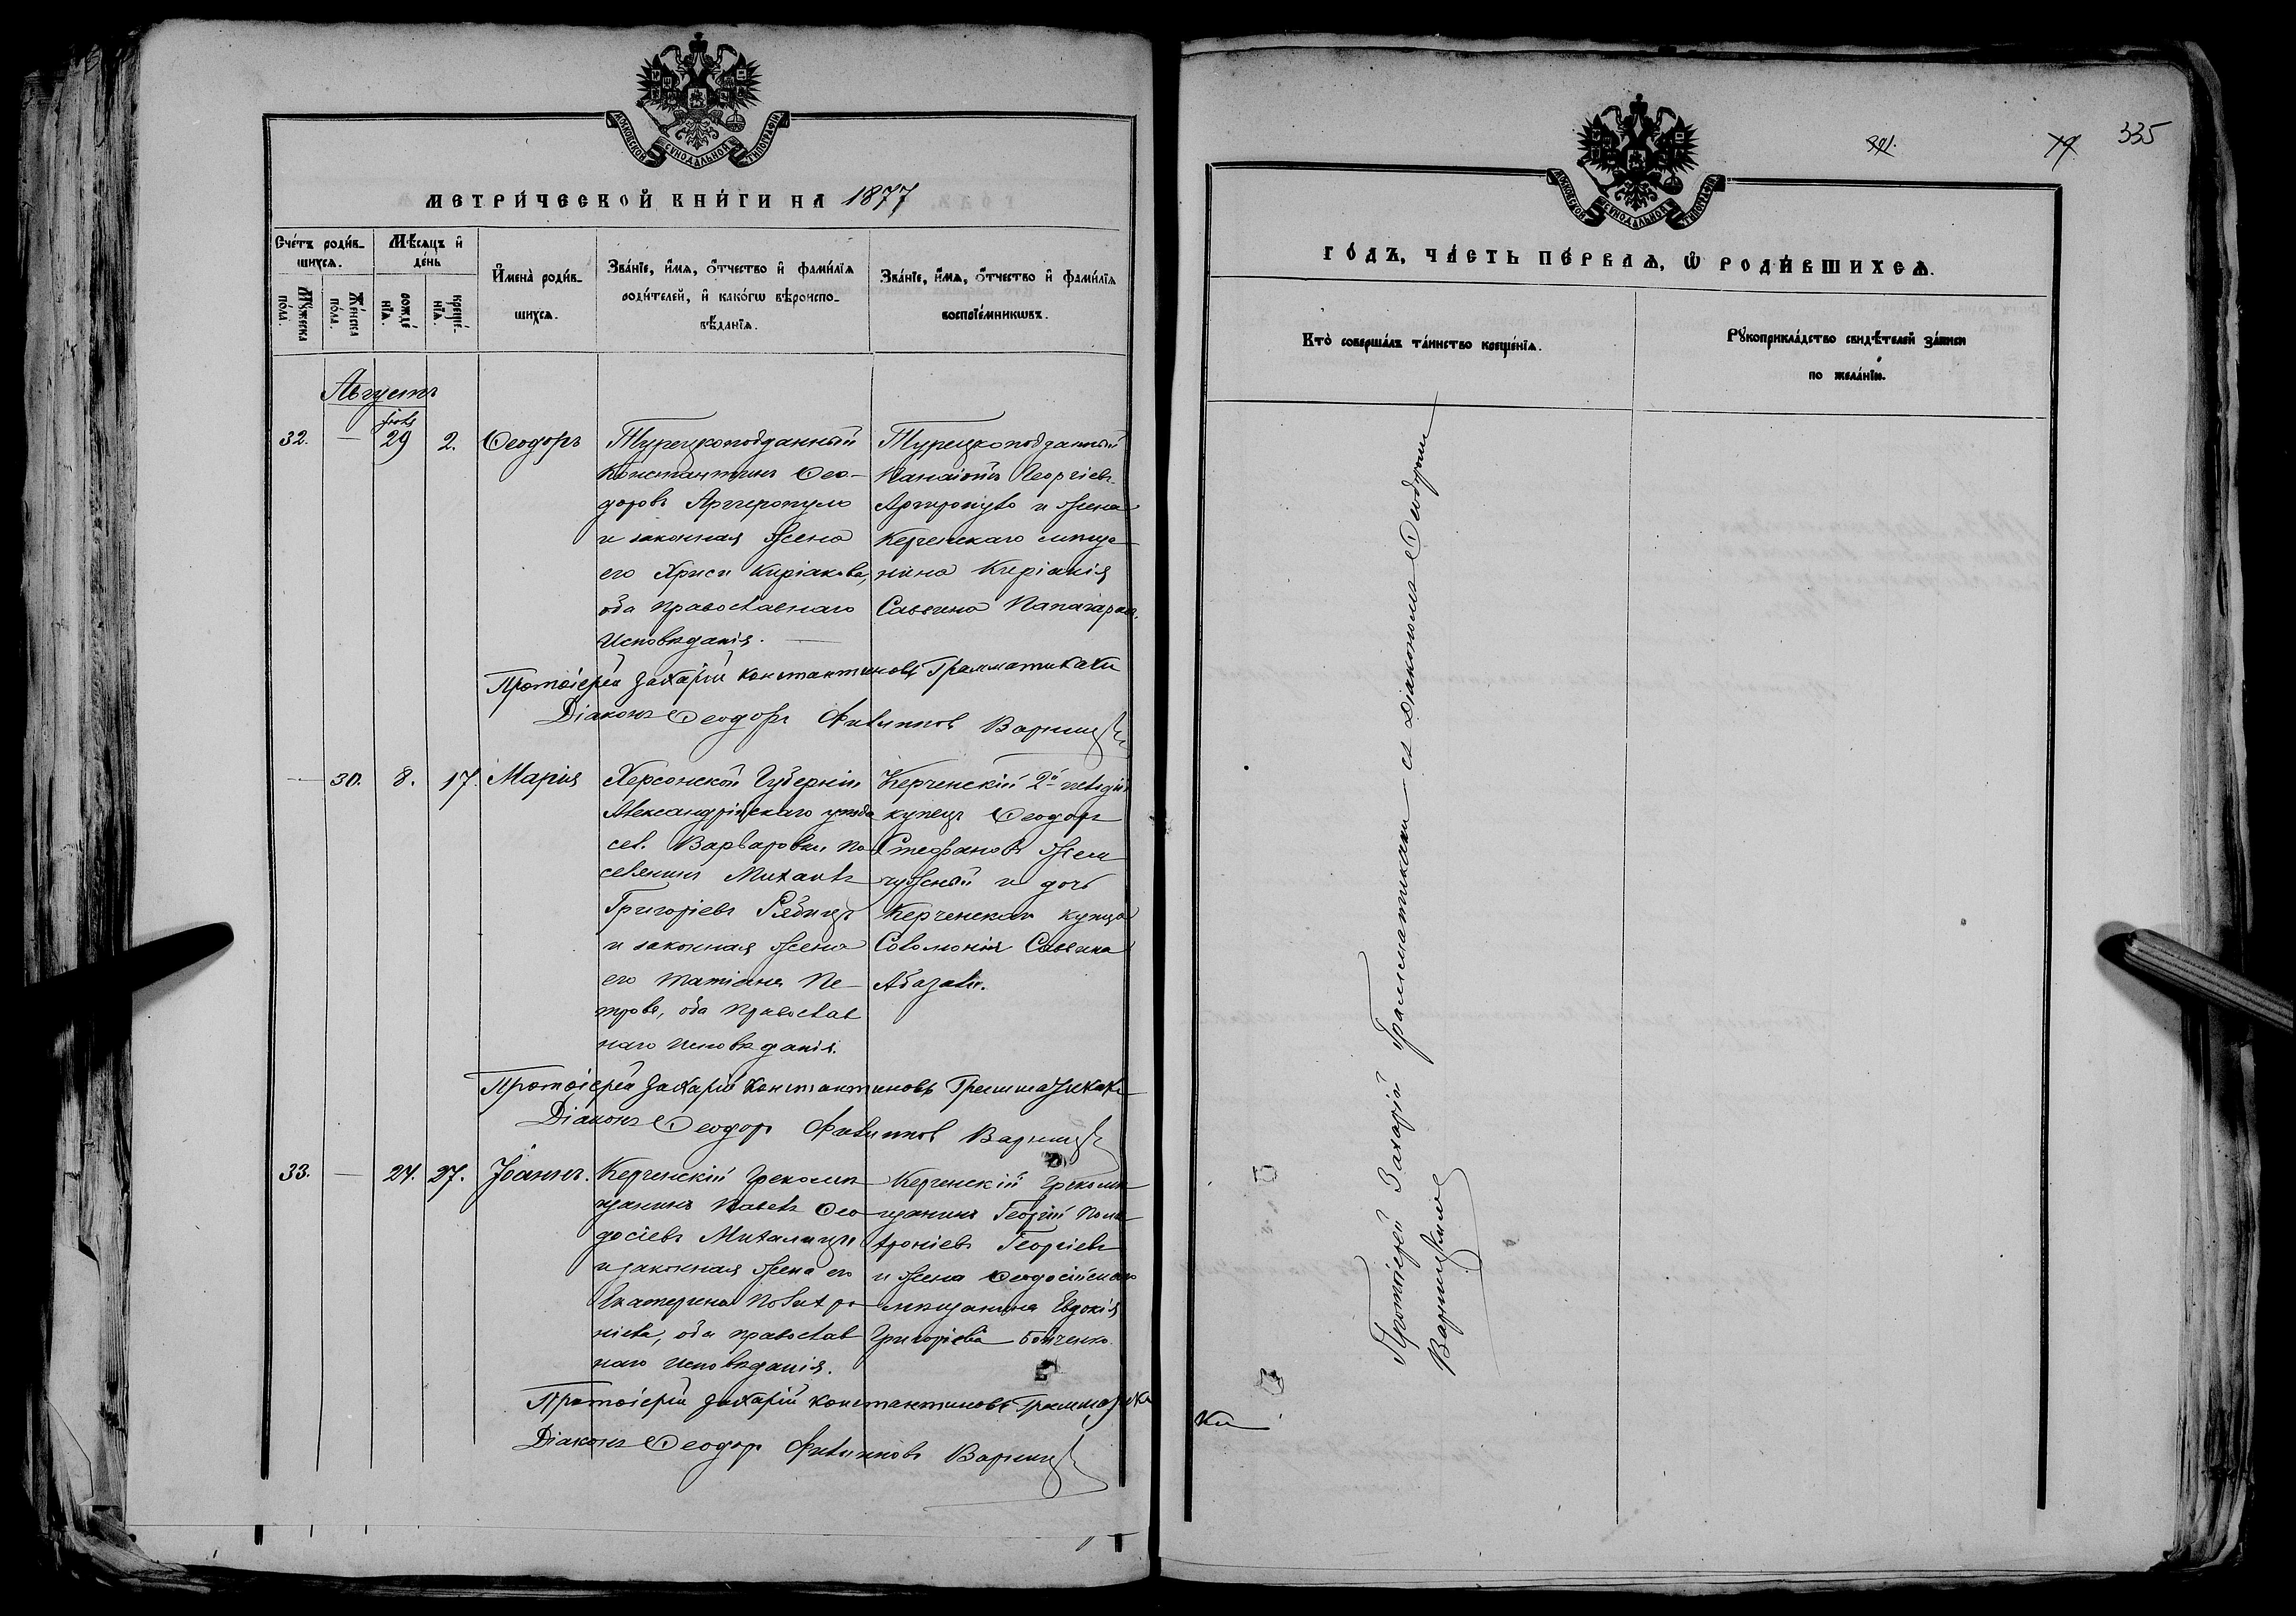 МОСКОВСКОЙ СѴНОДАЛЬНОЙ ТИПОГРАФІИ
МЕТРИ́ЧЕСКОЙ КНИ́ГИ НА 1877
Сче́тъ роди́в-
шихсѧ.
Мѣ́сѧцъ и҆
де́нь
Мꙋ́жеска
по́ла.
Же́нска
по́ла.
рожде́
нїѧ.
креще́-
нїѧ.
И҆мена̀ роди́в-
шихсѧ.
Зва́нїе, и҆́мѧ, ѻ҆́тчество и҆ фами́лїѧ
роди́телей, и҆ како́гѡ вѣроиспо-
вѣ́данїѧ.
Зва́нїе, и҆́мѧ, ѻ҆́тчество и҆ фами́лїѧ
воспрїе́мникѡвъ.
Августъ
32. — Іюля 29 2. Ѳеодоръ
Турецкоподданный
Константинъ Ѳео-
доровъ Аргиропуло
и законная жена
его Хриси Киріакова,
оба православнаго
Исповѣданія.
Турецкоподданный
Панаіотъ Георгіевъ
Аргиропуло и жена
Керченскаго мѣща
нина Киріакія
Саввина
Протоіерей Захарій Константиновъ Грамматикаки
Діаконъ Ѳеодоръ Филипповъ
— 30. 8. 17. Марія
Херсонской Губерніи
Александрійскаго уѣзда
сел. Варваровки по
селенинъ Михаилъ
Григорьевъ
и законная жена
его Татіана Пе-
трова, оба Православ
наго Исповѣданія.
Керченскій 2й гильдіи
купецъ Ѳеодоръ
Стефановъ Жем
чужный и дочь
Керченскаго купца
Соломонія Саввина
Абазали.
Протоіерей Захарій Константиновъ Грамматикаки
Діаконъ Ѳеодоръ Филипповъ
33. — 24. 27. Іоаннъ.
Керченскій грекомѣ
щанинъ Павелъ Ѳео
досіевъ Михалици
и законная жена его
Екатерина Полихро
ніева, оба православ
наго исповѣданія.
Керченскій грекомѣ
щанинъ Георгій Поли
хроніевъ Георгіевъ
и жена Ѳеодосійскаго
мѣщанина Евдокія
Григоріева Бойченко.
Протоіерей Захарій Константиновъ Грамматика
Діаконъ Ѳеодоръ Филипповъ
МОСКОВСКОЙ СѴНОДАЛЬНОЙ ТИПОГРАФІИ
335
ГО́ДЪ, ЧА́СТЬ ПЕ́РВАѦ, Ѡ҆ РОДИ́ВШИХСѦ.
Кто̀ соверша́лъ та́инство креще́нїѧ.
Рꙋкоприкла́дство свидѣ́телей за́писи
по жела́нїю.
Протоіерей Захарій Грамматикаки съ Діакономъ Ѳеодоромъ
Варшицкимъ
ки